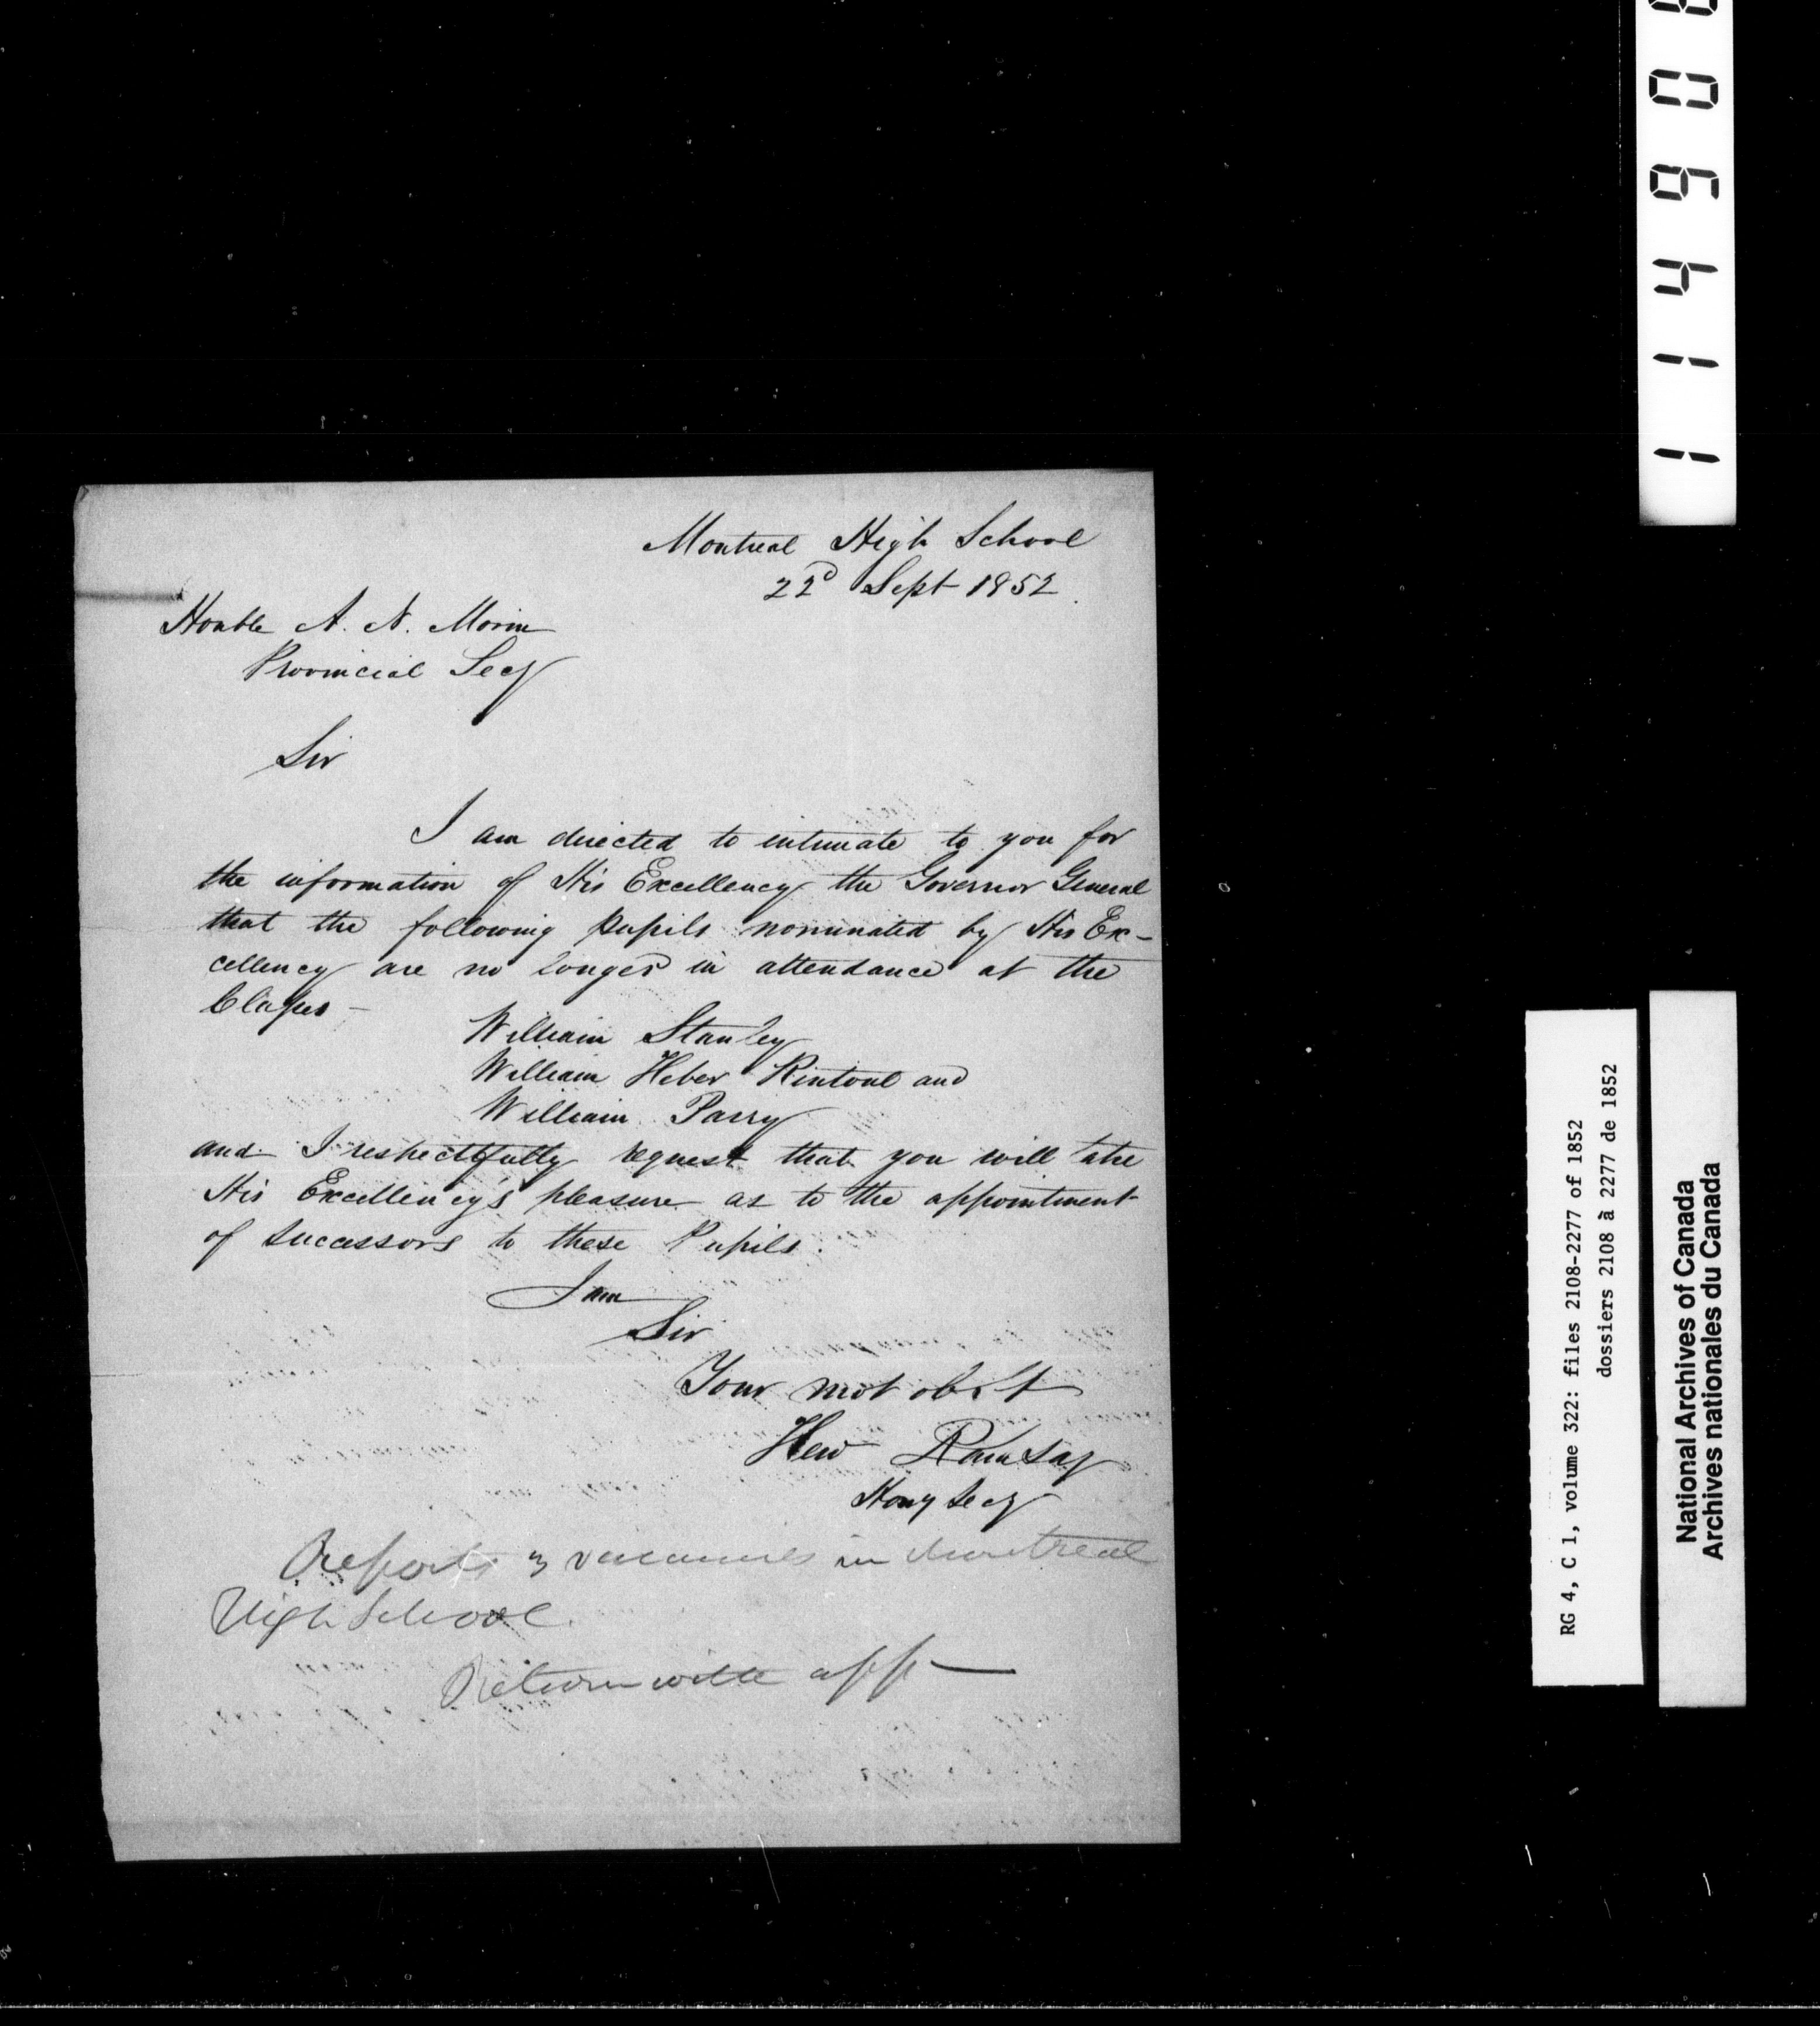 Montreal High School
22d Sept 1852
Honble A. N. Morin
Provincial Secy
Sir
I am directed to intimate to you for
the information of His Excellency the Governor General
that the following pupils nominated by His Ex-
cellency are no longer in attendance at the
Classes -
William Stanley
William Heber Rintoul and
William Parry
and I respectfully request that you will take
His Excellency's pleasure as to the appointment
of successors to these Pupils.
I am
Sir
Your most obdt
Hew Ramsay
Hony Secy
Reports 3 vacancies in Montreal
High School.
Return with app
RG 4, C 1, volume 322: files 2108-2277 of 1852
dossiers 2108 à 2277 de 1852
National Archives of Canada
Archives nationales du Canada